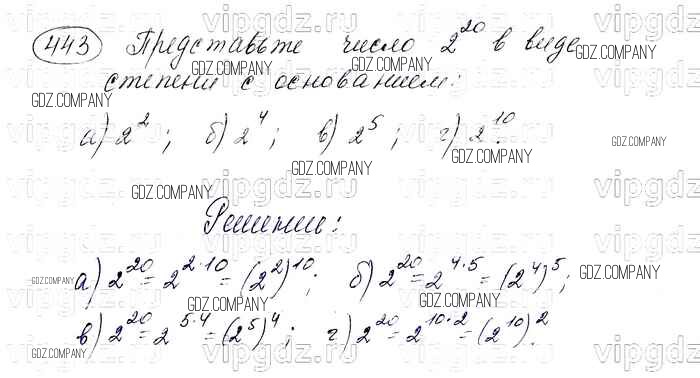 443 Представьте число 2^20 в виде
степени с основанием:
а) 2^2; б) 2^4; в) 2^5; г) 2^10.
Решение:
а) 2^20 = 2^2·10 = (2^2)^10; б) 2^20 = 2^4·5 = (2^4)^5;
в) 2^20 = 2^5·4 = (2^5)^4; г) 2^20 = 2^10·2 = (2^10)^2.